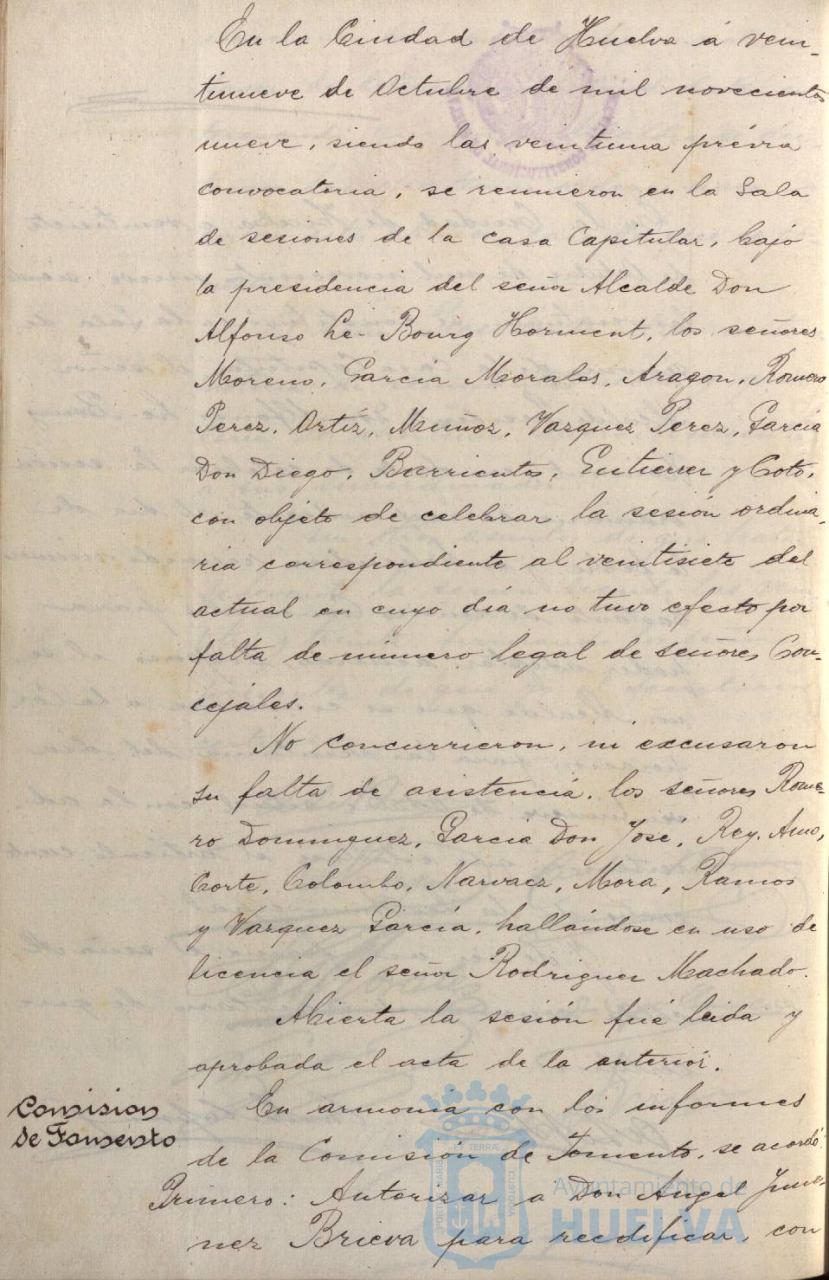 En la Ciudad de Huelva á vein-
tinueve de Octubre de mil novecientos
nueve, siendo las veintiuna prévia
convocatoria, se reunieron en la Sala
de sesiones de la casa Capitular, bajo
la presidencia del señor Alcalde Don
Alfonso Le-Bourg Horment, los señores
Moreno, Garcia Morales, Aragon, Romero
Perez, Ortíz, Muñoz, Vazquez Perez, García
Don Diego, Barrientos, Gutierrez y Coto,
con objeto de celebrar la sesión ordina-
ria correspondiente al veintisiete del
actual en cuyo día no tuvo efecto por
falta de número legal de señores Con-
cejales.
No concurrieron, ni excusaron
su falta de asistencia, los señores Rome-
ro Dominguez, Garcia Don José, Rey, Amo,
Corte, Colombo, Narvaez, Mora, Ramos
y Vazquez García, hallándose en uso de
licencia el señor Rodriguez Machado.
Abierta la sesión fué leida y
aprobada el acta de la anterior.
Comision
de Fomento
En armonia con los informes
de la Comisión de Fomento, se acordó:
Primero: Autorizar a Don Angel Jime-
nez Brieva para reedificar, con
Ayuntamiento de
HUELVA